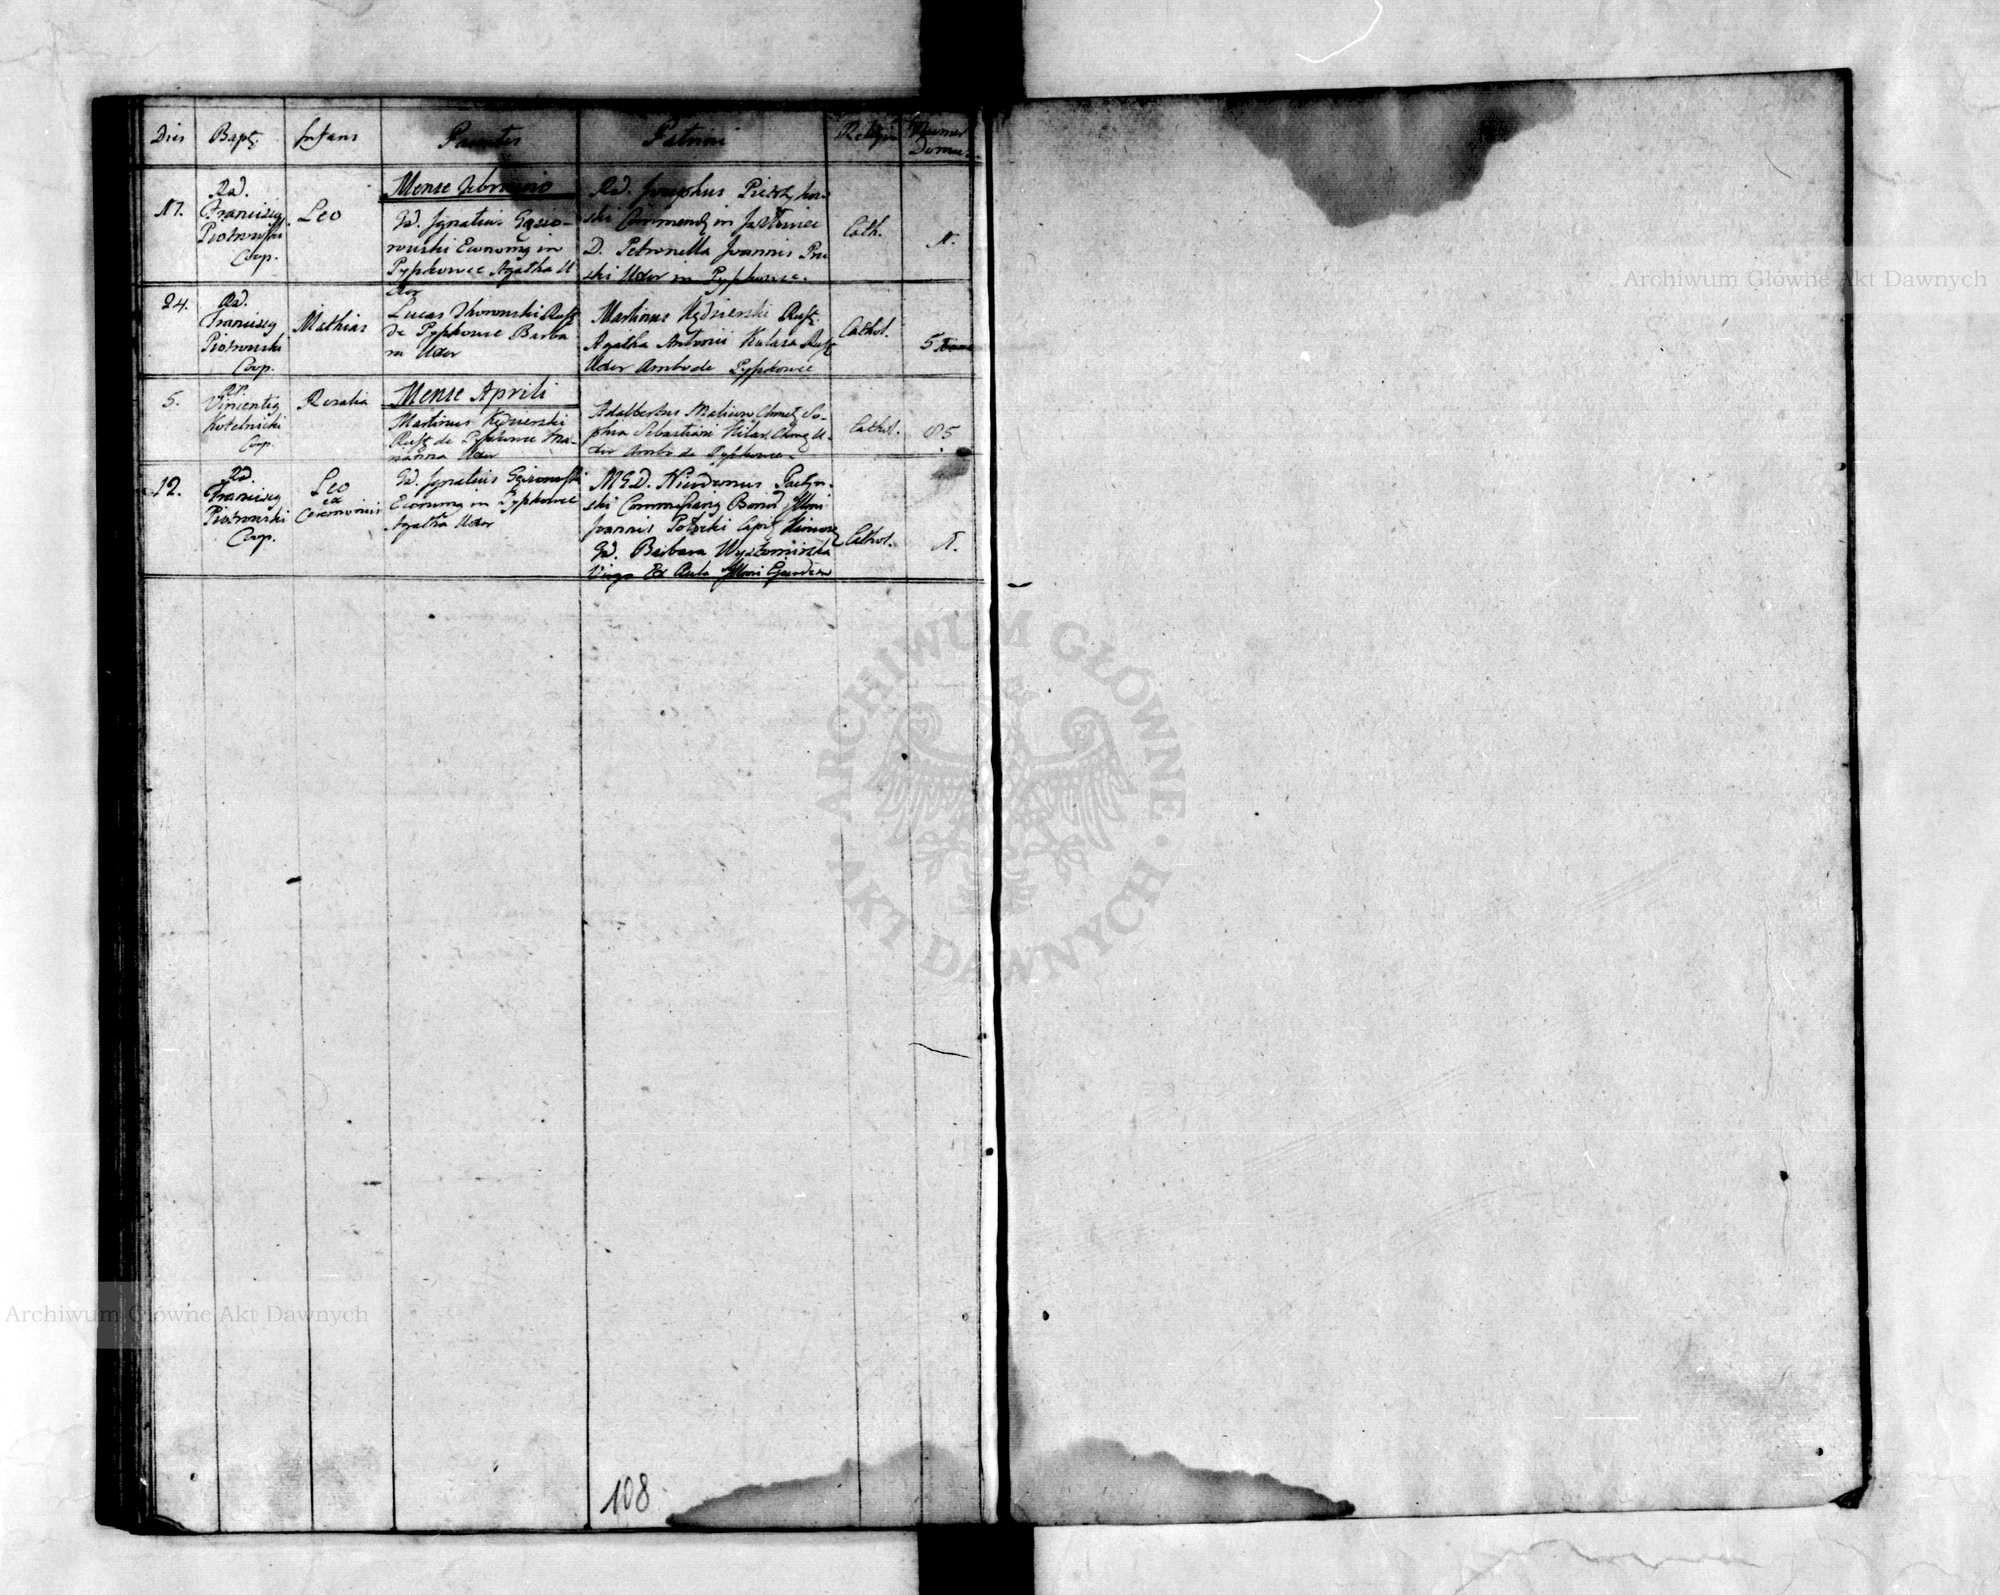 Dies Bapt. Infans Parentes Patrini Religio Numer Domus
Mense Februario
17.
Rd.
Francisc
Piotrowski
Coop.
Leo
Gd. Ignatius Gąsio-
rowski Econom in
Pypkowce Agatha U
xor
Rd. Josephus
ski Commend in
D. Petronella Joannis
ski Uxor in Pypkowce.
Cath.
N.
24.
Rd.
Francisc
Piotrowski
Coop.
Mathias
Lucas Rust
de Pypkowce Barba
ra Uxor
Martinus Kędzierski Rust.
Agatha Antonii Kulasa Rust
Uxor Ambo de Pypkowce
Cathol.
5
5.
Vincenty
Kotelnicki
Coop.
Rosalia
Mense Aprili
Martinus Kędzierski
Rust de Pypkowce Ma-
rianna Uxor
Adalbertus So-
phia Sebastiani U-
xor Ambo de Pypkowce.
Cathol.
5
12.
Rd.
Francisc
Piotrowski
Coop.
Leo
ex
Ceremoniis
Gd. Ignatius Gąsiorowski
Econom in Pypkowce
Agatha Uxor
M G D. Nicodemus
ski Bonor Illmi
Joannis Potocki
Gd. Barbara
Virgo Ex Aula Illmi Ejusdem
Cathol.
N.
108
Archiwum Główne Akt Dawnych
Archiwum Główne Akt Dawnych
ARCHIWUM GŁÓWNE · AKT DAWNYCH ·